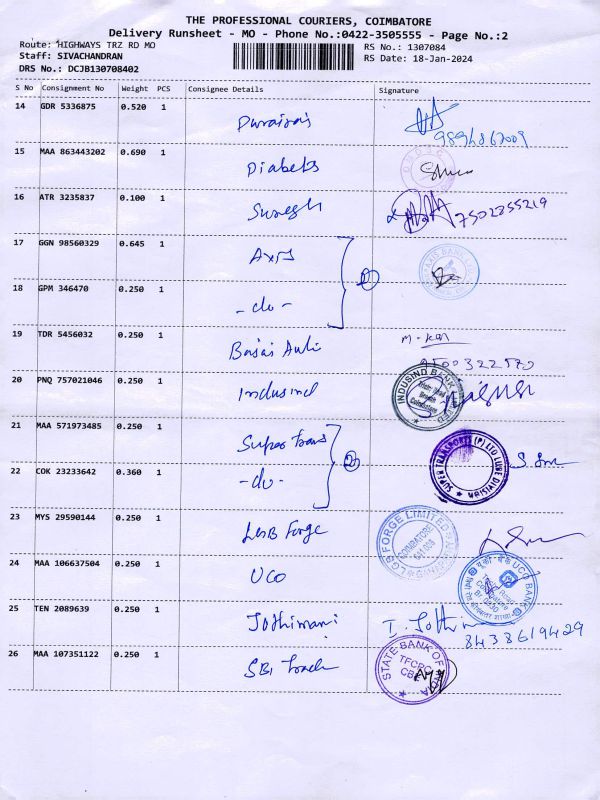 THE PROFESSIONAL COURIERS, COIMBATORE
Delivery Runsheet - MO - Phone No.:0422-3505555 - Page No.:2
Route: HIGHWAYS TRZ RD MO
RS No.: 1307084
Staff: SIVACHANDRAN
RS Date: 18-Jan-2024
DRS No.: DCJB130708402
S No Consignment No Weight PCS Consignee Details Signature
14 GDR 5336875 0.520 1
15 MAA 863443202 0.690 1 Diabetes
16 ATR 3235837 0.100 1 Suresh 7502855219
17 GGN 98560329 0.645 1 Axis
18 GPM 346470 0.250 1 -do-
19 TDR 5456032 0.250 1 Bajaj Auto
20 PNQ 757021046 0.250 1 Indusind INDUSIND BANK LIMITED
21 MAA 571973485 0.250 1 Super Trans SUPER TRANSPORTS (P) LTD LUBE DIVISION
22 COK 23233642 0.360 1 -do-
23 MYS 29590144 0.250 1 LGB Forge FORGE LIMITED COIMBATORE
24 MAA 106637504 0.250 1 UCO UCO BANK
25 TEN 2089639 0.250 1 Jothimani 8438619429
26 MAA 107351122 0.250 1 SBI STATE BANK OF INDIA